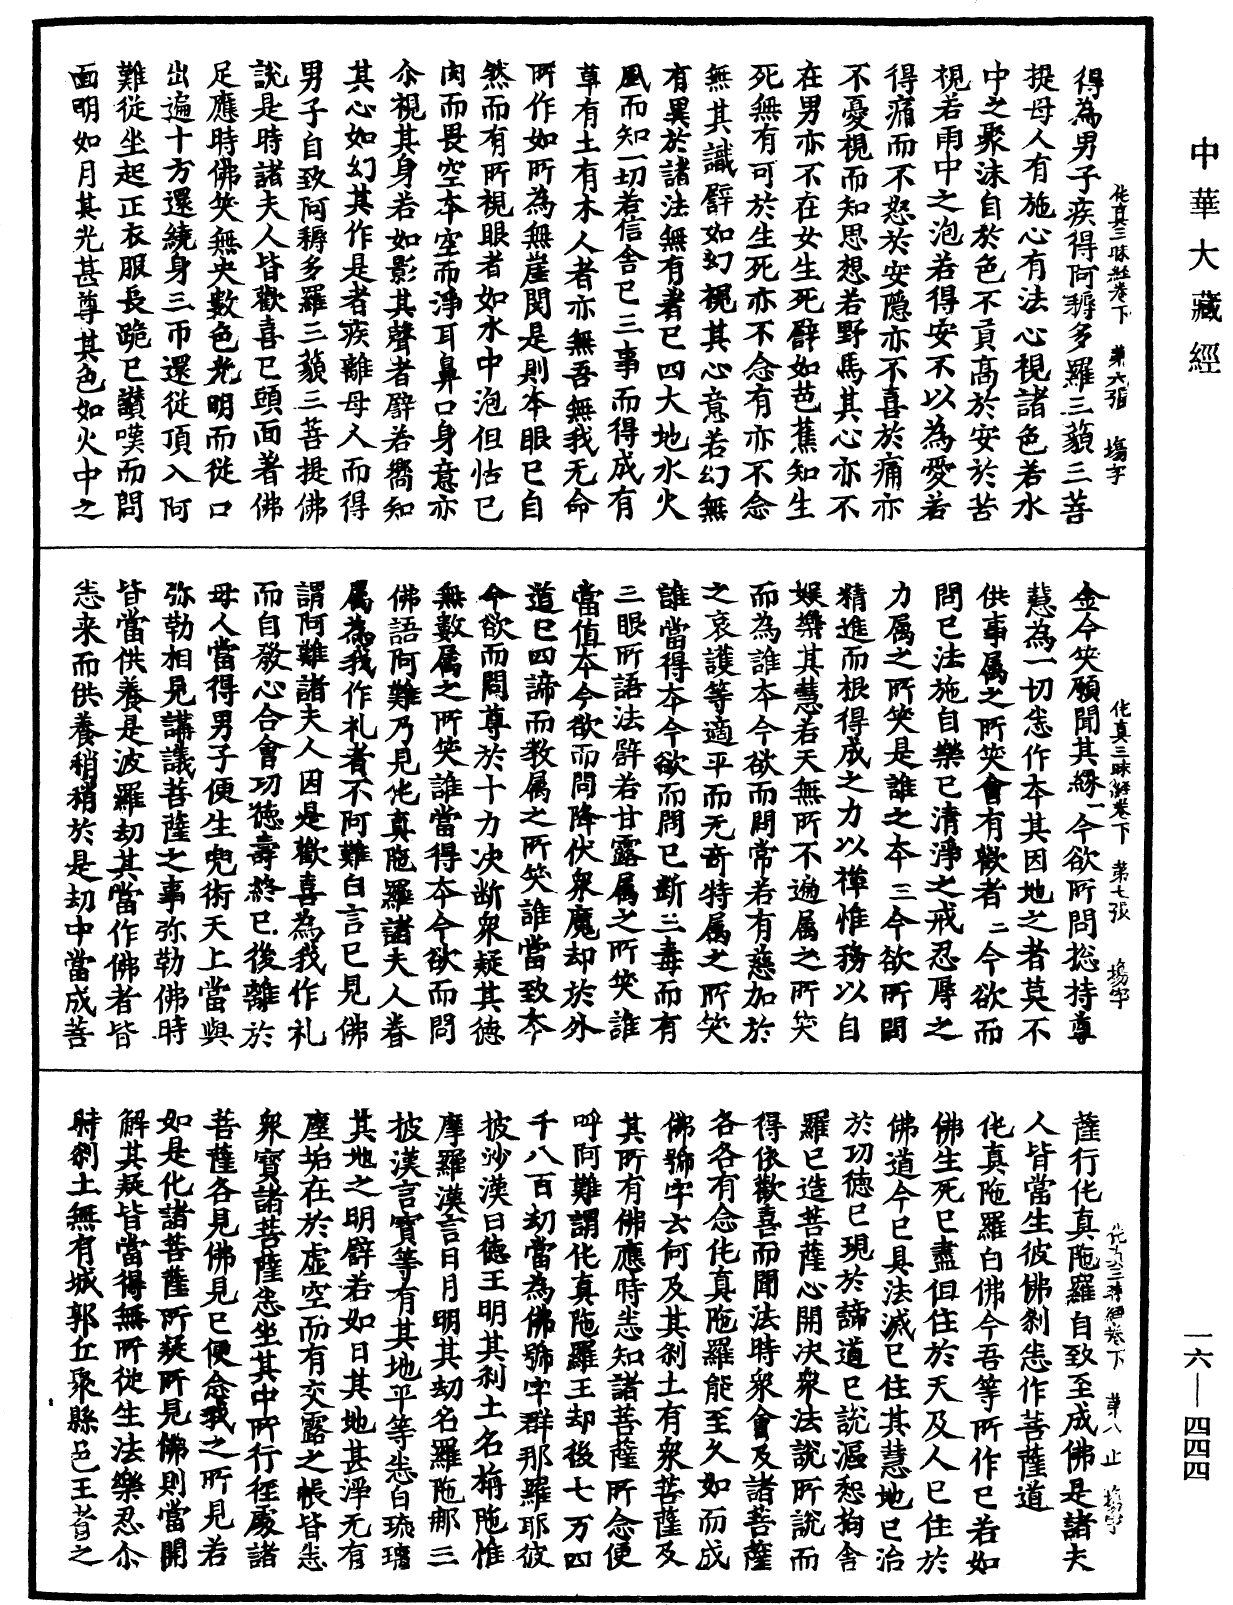 中華大藏經
伅真三昧經卷下 第六張 塲字
得為男子疾得阿耨多羅三藐三菩
提母人有施心有法心視諸色若水
中之聚沫自於色不貢高於安於苦
視若雨中之泡若得安不以為愛若
得痛而不怒於安隱亦不喜於痛亦
不憂視而知思想若野馬其心亦不
在男亦不在女生死譬如芭蕉知生
死無有可於生死亦不念有亦不念
無其識譬如幻視其心意若幻無
有異於諸法無有著已四大地水火
風而知一切若信舍已三事而得成有
草有土有木人者亦無吾無我无命
所作如所為無崖閡是則本眼已自
然而有所視眼者如水中泡但怙已
肉而畏空本空而淨耳鼻口身意亦
尒視其身若如影其聲者譬若嚮知
其心如幻其作是者疾離母人而得
男子自致阿耨多羅三藐三菩提佛
說是時諸夫人皆歡喜已頭面著佛
足應時佛笑無央數色光明而從口
出遍十方還繞身三帀還從頂入阿
難從坐起正衣服長跪已讃嘆而問
面明如月其光甚尊其色如火中之
伅真三昧經卷下 第七張 塲字
金今笑願聞其緣一今欲所問揔持尊
慧為一切悉作本其因地之者莫不
供事属之所笑會有歡者二今欲而
問已法施自樂已清淨之戒忍辱之
力属之所笑是誰之本三今欲所問
精進而根得成之力以禪惟務以自
娛樂其慧若天無所不遍属之所笑
而為誰本今欲而問常若有慈加於
之哀護等適平而无奇特属之所笑
誰當得本今欲而問已斷三毒而有
三眼所語法譬若甘露属之所笑誰
當值本今欲而問降伏衆魔却於外
道已四諦而教属之所笑誰當致本
今欲而問尊於十力決断衆疑其德
無數属之所笑誰當得本今欲而問
佛語阿難乃見伅真陁羅諸夫人眷
属為我作礼者不阿難白言已見佛
謂阿難諸夫人因是歡喜為我作礼
而自發心合會功德壽終已後離於
母人當得男子便生兜術天上當與
弥勒相見講議菩薩之事弥勒佛時
皆當供養是波羅劫其當作佛者皆
悉来而供養稍稍於是劫中當成菩
伅真三昧經卷下 第八 止 塲字
薩行伅真陁羅自致至成佛是諸夫
人皆當生彼佛剎悉作菩薩道
伅真陁羅白佛今吾等所作已若如
佛生死已盡但住於天及人已住於
佛道今已具法滅已住其慧地已治
於功德已現於諦道已說漚惒拘舍
羅已造菩薩心開決衆法說所說而
得依歡喜而聞法時衆會及諸菩薩
各各有念伅真陁羅能至久如而成
佛號字云何及其剎土有衆菩薩及
其所有佛應時悉知諸菩薩所念便
呼阿難謂伅真陁羅王却後七万四
千八百劫當為佛號字群那羅耶彼
披沙漢曰德王明其剎土名栴陁惟
摩羅漢言日月明其劫名羅陁那三
披漢言寶等有其地平等悉白琉璃
其地之明譬若如日其地甚淨无有
塵垢在於虛空而有交露之帳皆悉
衆寶諸菩薩悉坐其中所行徑處諸
菩薩各見佛見已便念我之所見若
如是化諸菩薩所疑所見佛則當開
解其疑皆當得無所從生法樂忍尒
時剎土無有城郭丘聚縣邑王者之
一六—四四四